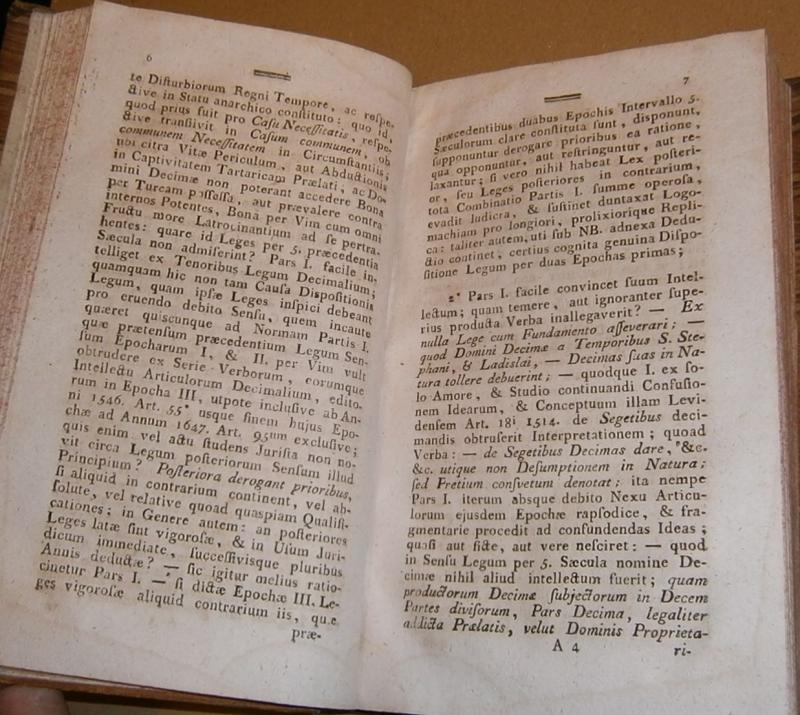 6
te Disturbiorum Regni Tempore, ac respe-
ctive in Statu anarchico constituto: quo id,
quod prius fuit pro Casu Necessitatis, respe-
ctive transivit in Casum communem, ob
communem Necessitatem in Circumstantiis;
ubi citra Vitæ Periculum, aut Abductionis
in Captivitatem Tartaricam Prælati, ac Do-
mini Decimæ non poterant accedere Bona
per Turcam possessa, aut prævalere contra
internos Potentes, Bona per Vim cum omni
Fructu more Latrocinantium ad se pertra-
hentes: quare id Leges per 5. præcedentia
Sæcula non admiserint? Pars I. facile in-
telliget ex Tenoribus Legum Decimalium;
quamquam hic non tam Causa Dispositionis
Legum, quam ipsæ Leges inspici debeant
pro eruendo debito Sensu, quem incaute
quæret quiscunque ad Normam Partis I.
quæ prætensum præcedentium Legum Sen-
sum Epocharum I, & II. per Vim vult
obtrudere ex Serie Verborum, eorumque
Intellectu Articulorum Decimalium, edito-
rum in Epocha III, utpote inclusive ab An-
ni 1546. Art. 55° usque finem hujus Epo-
chæ ad Annum 1647. Art. 95um exclusive;
quis enim vel actu studens Jurista non no-
vit circa Legum posteriorum Sensum illud
Principium? Posteriora derogant prioribus,
si aliquid in contrarium continent, vel ab-
solute, vel relative quoad quaspiam Qualifi-
cationes; in Genere autem: an posteriores
Leges latæ sint vigorosæ, & in Usum Juri-
dicum immediate, successivisque pluribus
Annis deductæ? — sic igitur melius ratio-
cinetur Pars I. — si dictæ Epochæ III. Le-
ges vigorosæ aliquid contrarium iis, quæ
præ-
7
præcedentibus duabus Epochis Intervallo 5.
Sæculorum clare constituta sunt, disponunt,
supponuntur derogare prioribus ea ratione,
qua opponuntur, aut restringuntur, aut re-
laxantur; si vero nihil habeat Lex posteri-
or, seu Leges posteriores in contrarium,
tota Combinatio Partis I. summe operosa,
evadit ludicra, & sustinet duntaxat Logo-
machiam pro longiori, prolixiorique Repli-
ca: taliter autem, uti sub NB. adnexa Dedu-
ctio continet, certius cognita genuina Dispo-
sitione Legum per duas Epochas primas;
2° Pars I. facile convincet suum Intel-
lectum; quam temere, aut ignoranter supe-
rius producta Verba inallegaverit? — Ex
nulla Lege cum Fundamento asseverari; —
quod Domini Decimæ a Temporibus S. Ste-
phani, & Ladislai, — Decimas suas in Na-
tura tollere debuerint; — quodque I. ex so-
lo Amore, & Studio continuandi Confusio-
nem Idearum, & Conceptuum illam Levi-
densem Art. 18i 1514. de Segetibus deci-
mandis obtruserit Interpretationem; quoad
Verba: — de Segetibus Decimas dare, &c.
&c. utique non Desumptionem in Natura;
sed Fretium consvetum denotat; ita nempe
Pars I. iterum absque debito Nexu Articu-
lorum ejusdem Epochæ rapsodice, & fra-
gmentarie procedit ad confundendas Ideas;
quasi aut ficte, aut vere nesciret: — quod
in Sensu Legum per 5. Sæcula nomine De-
cimæ nihil aliud intellectum fuerit; quam
productorum Decimæ subjectorum in Decem
Partes divisorum, Pars Decima, legaliter
addicta Prælatis, velut Dominis Proprieta-
A 4
ri-